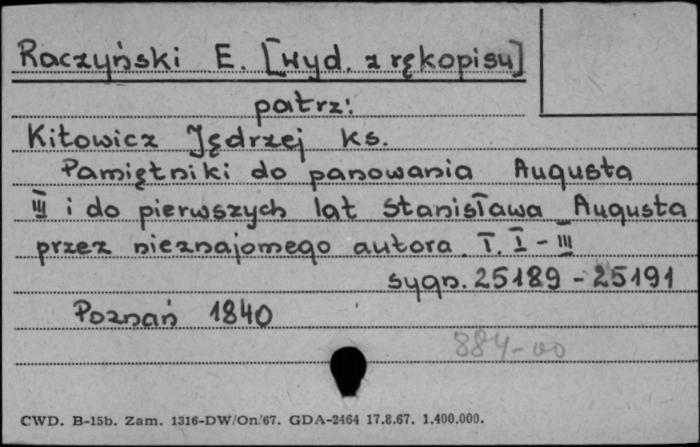 Raczyński E. [wyd. z rękopisu]
patrz:
Kitowicz Jędrzej ks.
Pamiętniki do panowania Augusta
III i do pierwszych lat Stanisława Augusta
przez nieznajomego autora T. I - III
sygn. 25189 - 25191
Poznań 1840
884-00
CWD. B-15b. Zam. 1316-DW/On/67. GDA-2464 17.8.67. 1.400.000.